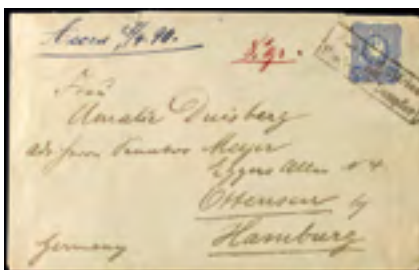 Accra
90.
Frau
Amalie Duisberg
adr Herrn Senator Meyer
Eggers Allee No 4
Ottensen by
Hamburg
Germany